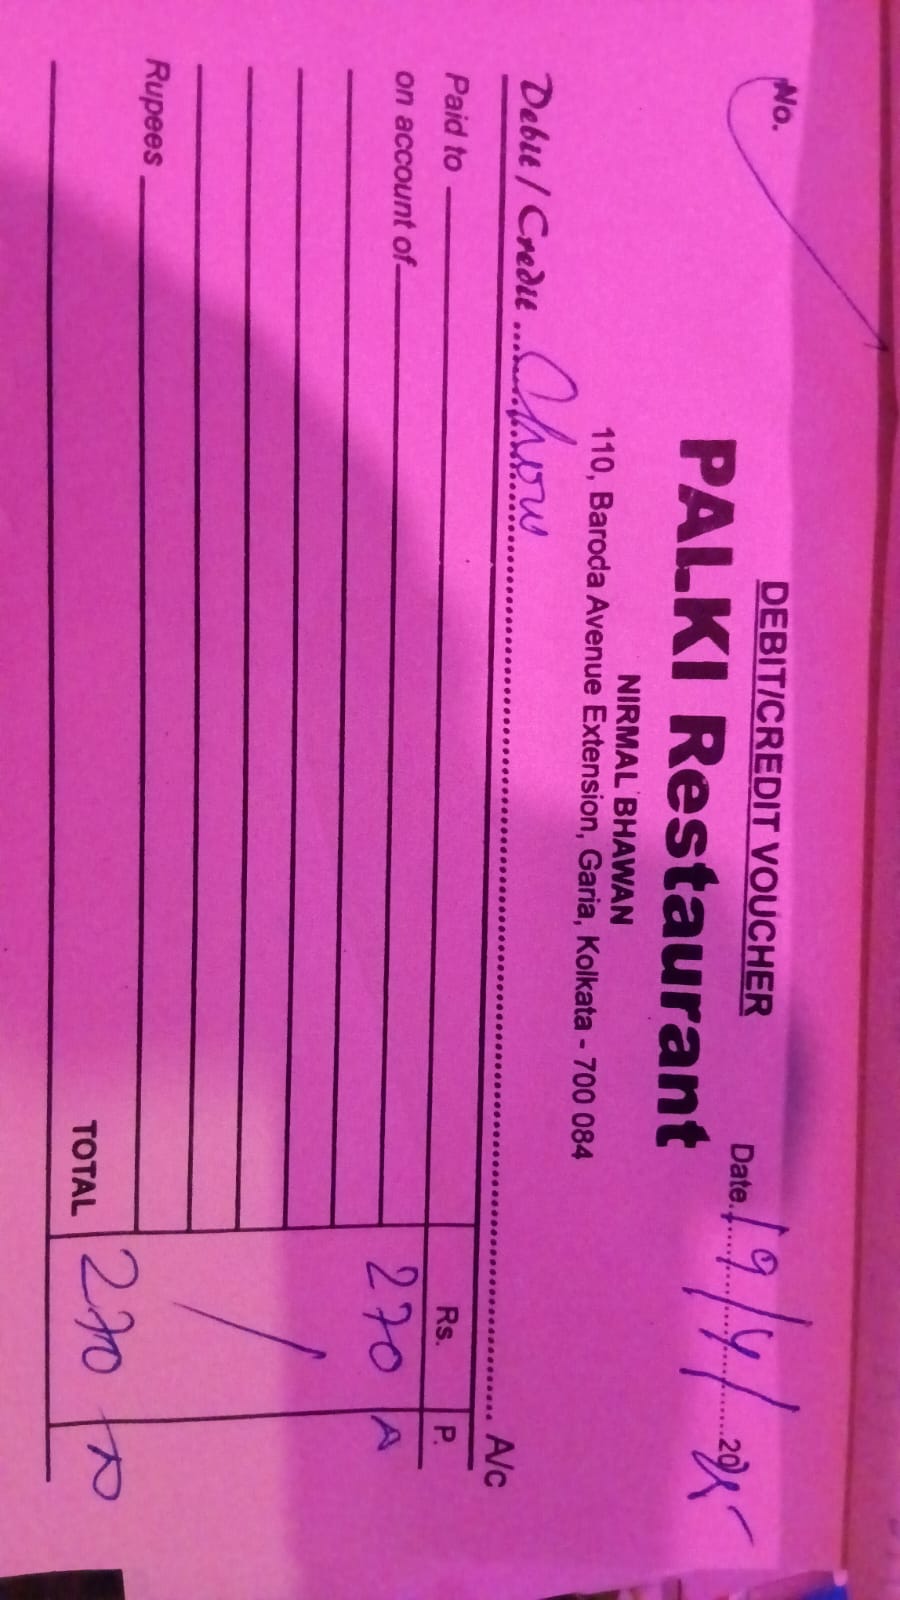 DEBIT/CREDIT VOUCHER
No. Date. 19/4/2025
PALKI Restaurant
NIRMAL BHAWAN
110, Baroda Avenue Extension, Garia, Kolkata - 700 084
Debit / Credit Chow A/c
Paid to Rs. P.
on account of 270
Rupees
TOTAL 270